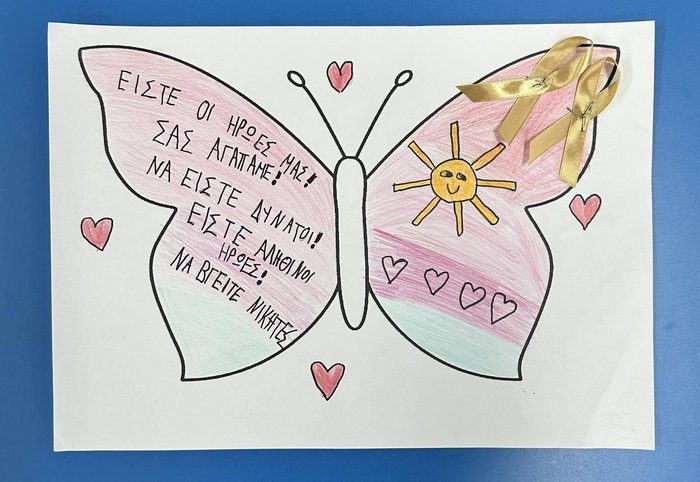 ΕΙΣΤΕ ΟΙ ΗΡΩΕΣ ΜΑΣ!
ΣΑΣ ΑΓΑΠΑΜΕ!
ΝΑ ΕΙΣΤΕ ΔΥΝΑΤΟΙ!
ΕΙΣΤΕ ΑΛΗΘΙΝΟΙ
ΗΡΩΕΣ!
ΝΑ ΒΓΕΙΤΕ ΝΙΚΗΤΕΣ